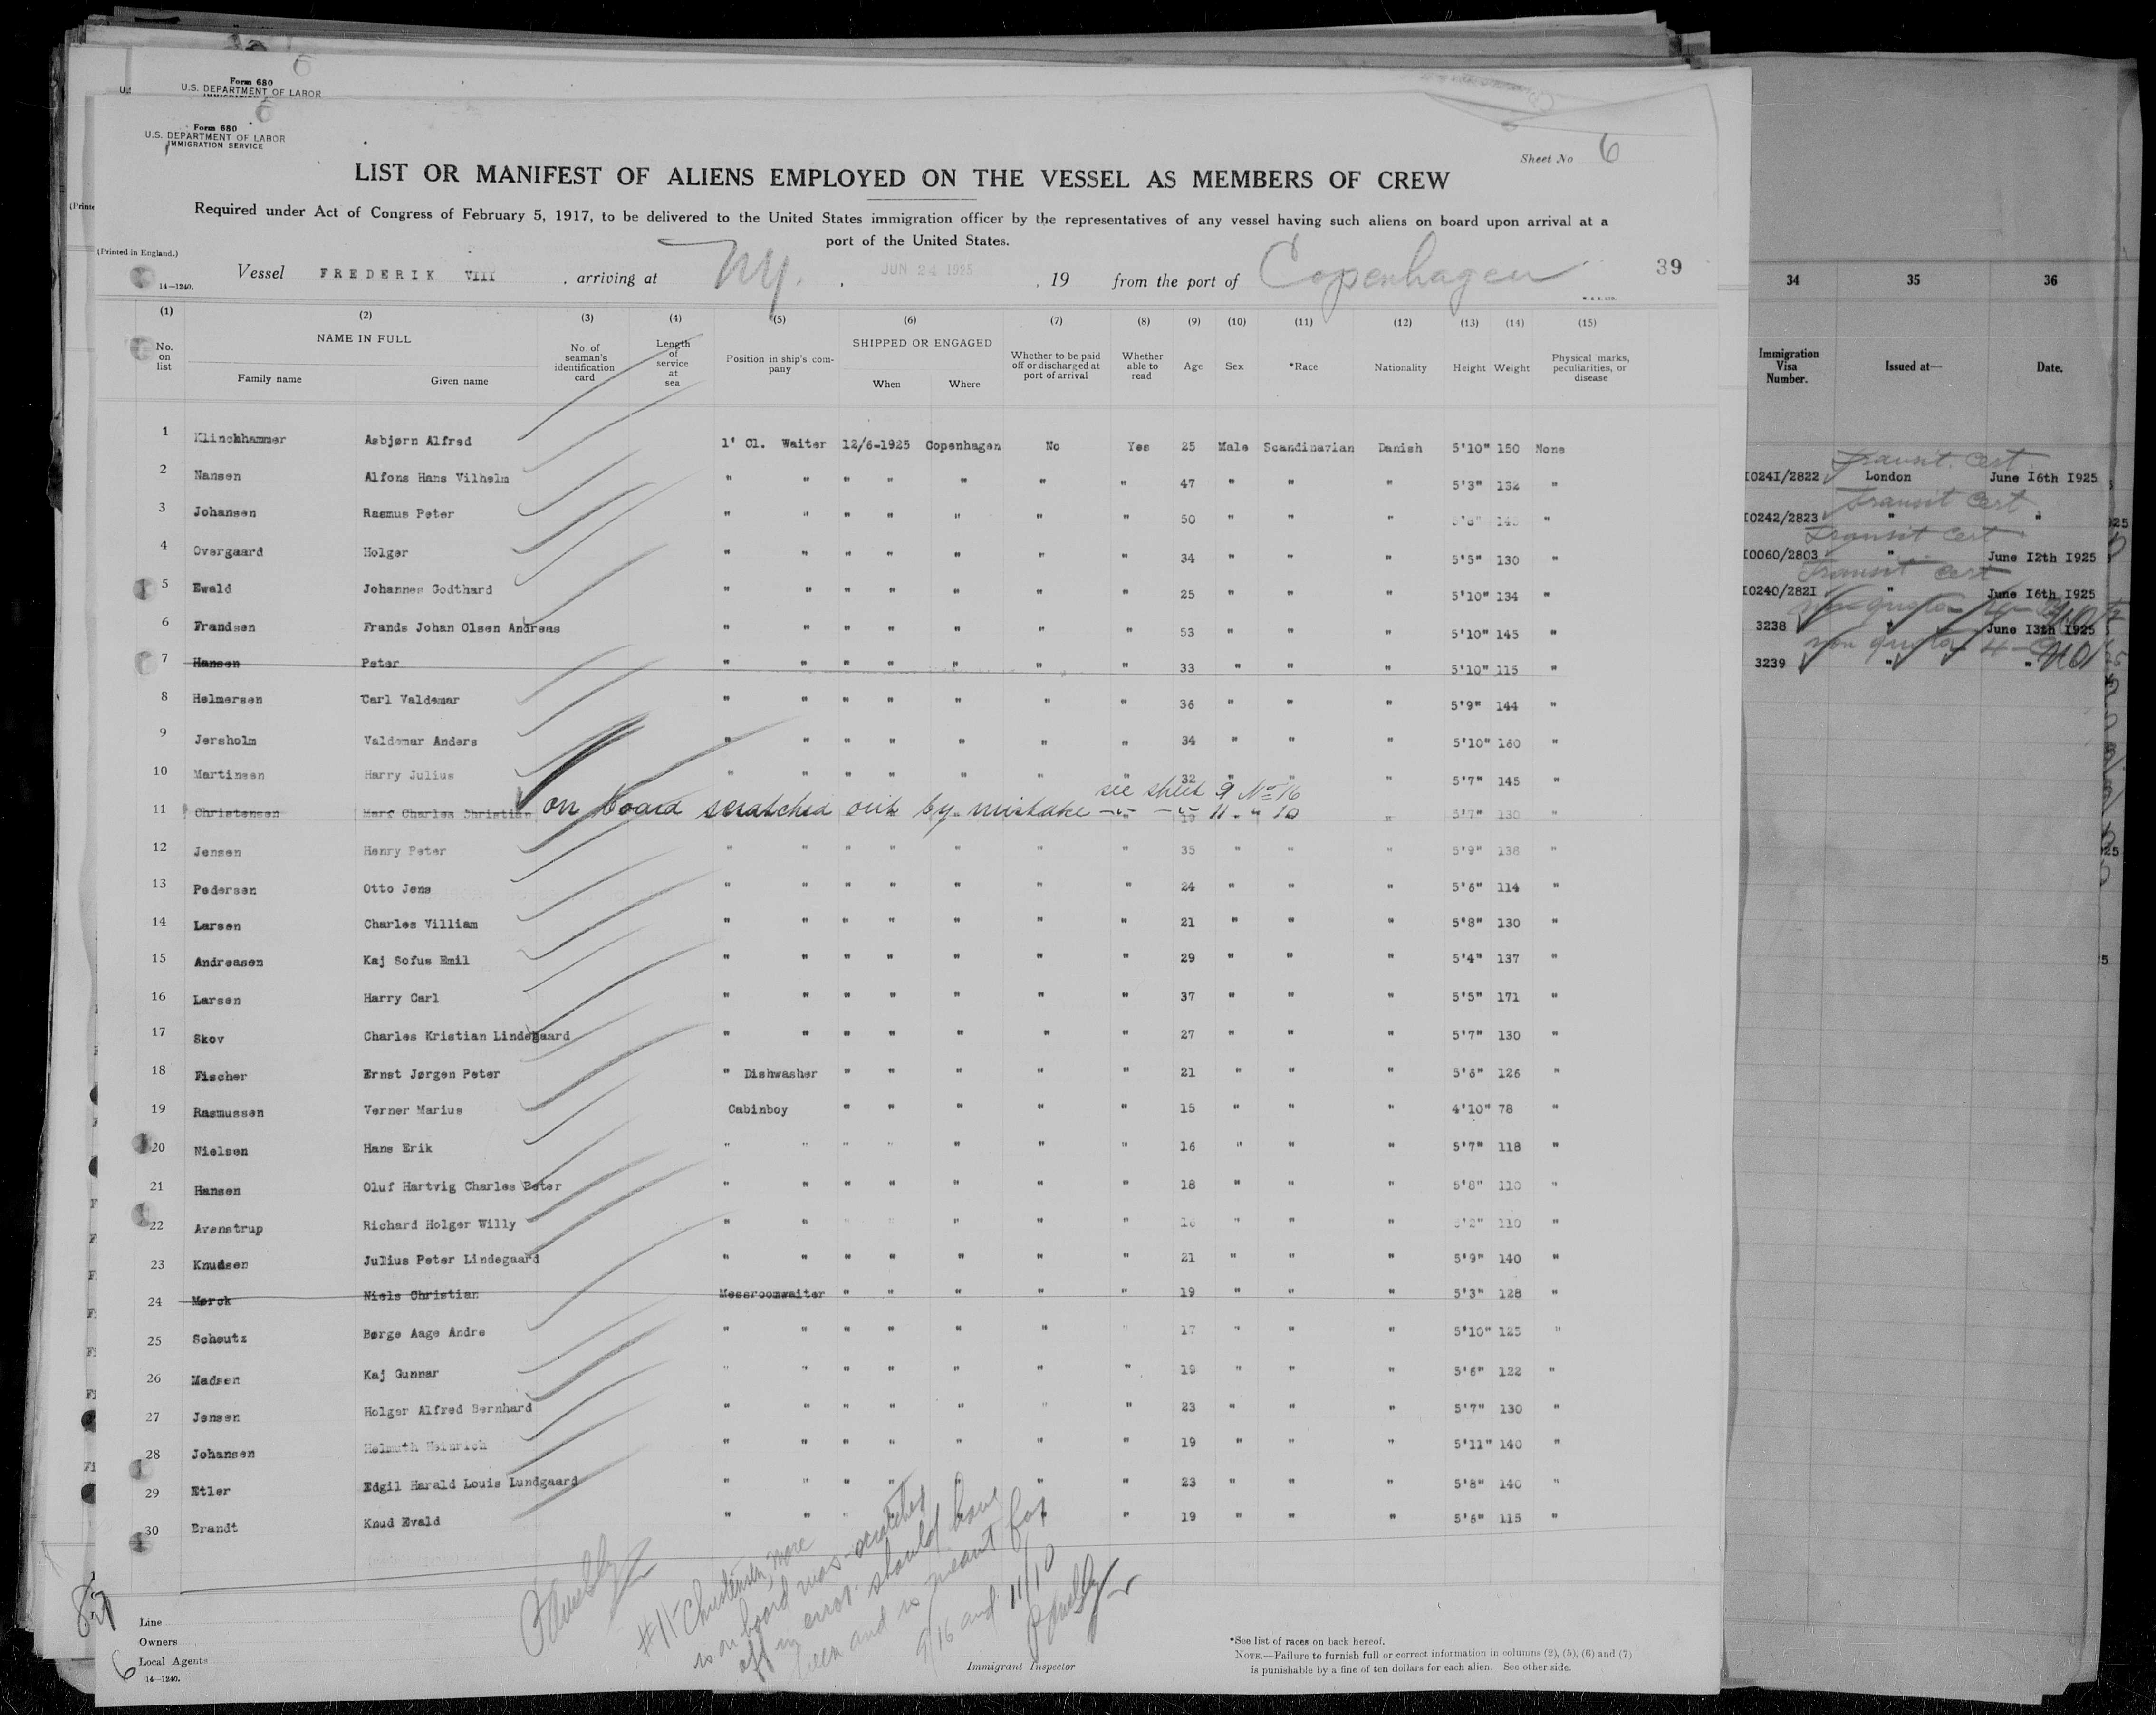 Form 680
U.S. DEPARTMENT OF LABOR
Form 680
U.S. DEPARTMENT OF LABOR
IMMIGRATION SERVICE
Sheet No 6
LIST OR MANIFEST OF ALIENS EMPLOYED ON THE VESSEL AS MEMBERS OF CREW
Required under Act of Congress of February 5, 1917, to be delivered to the United States immigration officer by the representatives of any vessel having such aliens on board upon arrival at a
port of the United States.
(Printed in England.)
Vessel FREDERIK VIII , arriving at NY. , JUN 24 1925 , 19 from the port of Copenhagen 39
14—1240.
(1) (2) (3) (4) (5) (6) (7) (8) (9) (10) (11) (12) (13) (14) (15)
No. on list NAME IN FULL Family name Given name No. of seaman's identification card Length of service at sea Position in ship's company SHIPPED OR ENGAGED When Where Whether to be paid off or discharged at port of arrival Whether able to read Age Sex *Race Nationality Height Weight Physical marks, peculiarities, or disease
1 Klinckhammer Asbjørn Alfred 1' Cl. Waiter 12/6-1925 Copenhagen No Yes 25 Male Scandinavian Danish 5'10" 150 None
2 Nansen Alfons Hans Vilhelm " " " " " " " 47 " " " 5'3" 132 "
3 Johansen Rasmus Peter " " " " " " " 50 " " " "
4 Overgaard Holger " " " " " " " 34 " " " 5'5" 130 "
5 Ewald Johannes Godthard " " " " " " " 25 " " " 5'10" 134 "
6 Frandsen Frands Johan Olsen Andreas " " " " " " " 53 " " " 5'10" 145 "
7 Hansen Peter " " " " " " " 33 " " " 5'10" 115 "
8 Helmersen Carl Valdemar " " " " " " " 36 " " " 5'9" 144 "
9 Jersholm Valdemar Anders " " " " " " " 34 " " " 5'10" 160 "
10 Martinsen Harry Julius " " " " " " " 32 " " " 5'7" 145 "
see sheet 9 No 16
11 Christensen Charles Christian on board scratched out by mistake —"— —"— 11 - " 10 19 " 5'7" 130 "
12 Jensen Henry Peter " " " " " " " 35 " " " 5'9" 138 "
13 Pedersen Otto Jens " " " " " " " 24 " " " 5'6" 114 "
14 Larsen Charles Villiam " " " " " " " 21 " " " 5'8" 130 "
15 Andreasen Kaj Sofus Emil " " " " " " " 29 " " " 5'4" 137 "
16 Larsen Harry Carl " " " " " " " 37 " " " 5'5" 171 "
17 Skov Charles Kristian Lindegaard " " " " " " " 27 " " " 5'7" 130 "
18 Fischer Ernst Jørgen Peter " Dishwasher " " " " " 21 " " " 5'6" 126 "
19 Rasmussen Verner Marius Cabinboy " " " " " 15 " " " 4'10" 78 "
20 Nielsen Hans Erik " " " " " " " 16 " " " 5'7" 118 "
21 Hansen Oluf Hartvig Charles Peter " " " " " " " 18 " " " 5'8" 110 "
22 Avenstrup Richard Holger Willy " " " " " " " 16 " " " 110 "
23 Knudsen Julius Peter Lindegaard " " " " " " " 21 " " " 5'9" 140 "
24 Mørck Niels Christian Messroomwaiter " " " " " 19 " " " 5'3" 128 "
25 Scheutz Børge Aage Andre " " " " " " " 17 " " " 5'10" 125 "
26 Madsen Kaj Gunnar " " " " " " " 19 " " " 5'6" 122 "
27 Jensen Holger Alfred Bernhard " " " " " " " 23 " " " 5'7" 130 "
28 Johansen Helmuth Heinrich " " " " " " " 19 " " " 5'11" 140 "
29 Etler Edgil Harald Louis Lundgaard " " " " " " " 23 " " " 5'8" 140 "
30 Brandt Knud Evald " " " " 19 " " " 5'5" 115 "
#11 Christensen, Marc
is on board was scratched
off in error should have
been and is meant for
9/16 and 11/10
Line
Owners
Local Agents
14—1240.
6
Immigrant Inspector
*See list of races on back hereof.
NOTE.—Failure to furnish full or correct information in columns (2), (5), (6) and (7)
is punishable by a fine of ten dollars for each alien. See other side.
34 35 36
Immigration Visa Number. Issued at— Date.
Transit Cert
10241/2822 London June 16th 1925
Transit Cert
10242/2823 " "
Transit Cert
10060/2803 " June 12th 1925
Transit Cert
10240/2821 " June 16th 1925
non quota
3238 " June 13th 1925
non quota
3239 " "